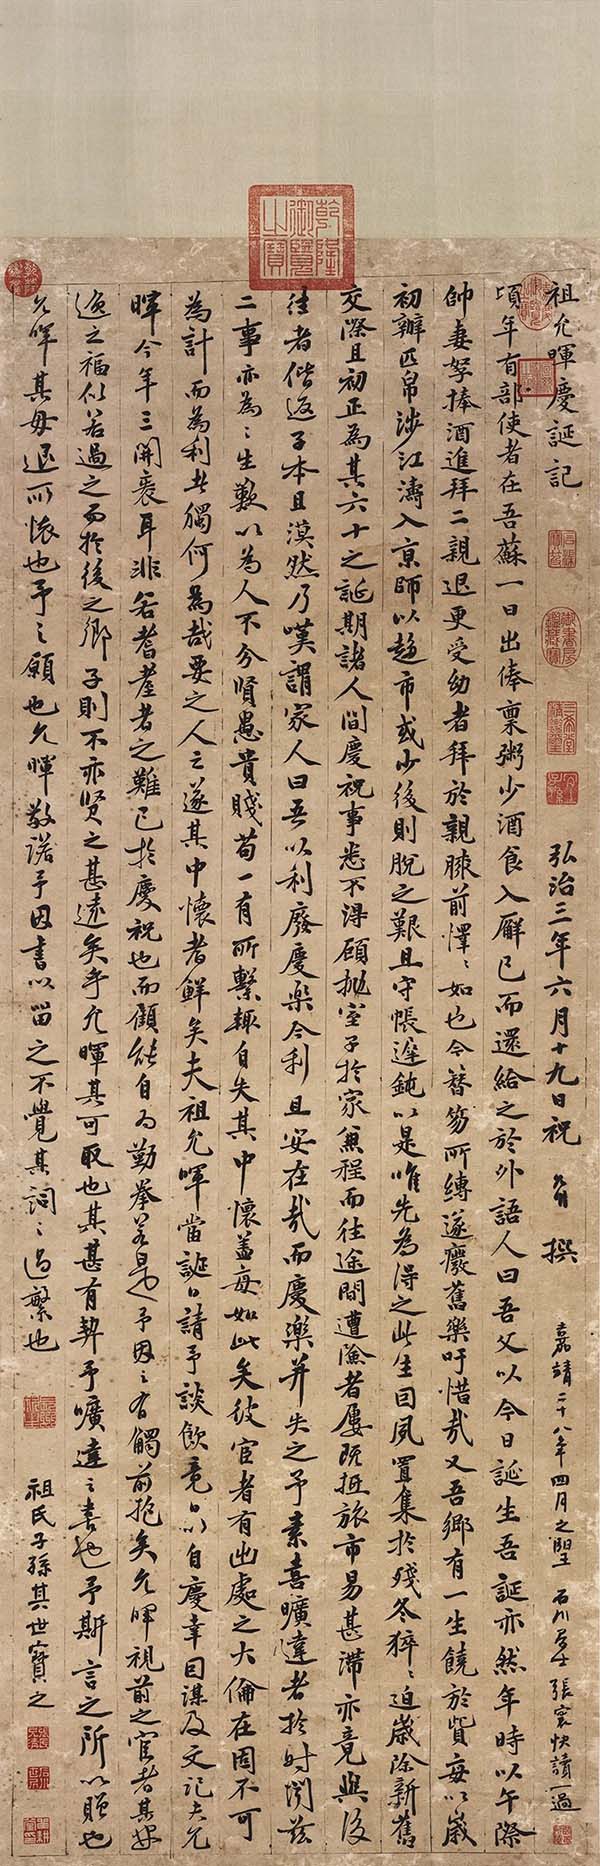 祖允暉慶誕記
弘治三年六月十九日祝 撰
嘉靖二十八年四月之望 石川 張寰快讀一過
頃年有部使者在吾蘇一日出俸稟粥少酒食入廨已而還給之於外語人曰吾父以今日誕生吾誕亦然年時以午際
帥妻孥捧酒進拜二親退更受幼者拜於親膝前懌〻如也今簪笏所縛遂癈舊樂吁惜哉又吾鄉有一生饒於貲每以歲
初辦匹帛涉江濤入京師以趍市或少後則脫之艱且守帳遲鈍以是唯先為得之此生因夙置集於殘冬猝〻迫歲除新舊
交際且初正為其六十之誕期諸人間慶祝事悉不得顧拋室子於家兼程而往途間遭險者屢既抵旅市易甚滯亦竟與後
往者偕返子本且漠然乃嘆謂家人曰吾以利廢慶樂今利且安在哉而慶樂并失之予素喜曠達者於時閱茲
二事亦為〻生歎以為人不分賢愚貴賤苟一有所繫輒自失其中懷盖每如此矣彼宦者有出處之大倫在固不可
為計而為利者獨何為哉要之人之遂其中懷者鮮矣夫祖允暉當誕日請予談飲竟日以自慶幸因謀及文記夫允
暉今年三開袠耳非若耆耋者之難已於慶祝也而顧能自為勤拳若是予因〻有觸前抱矣允暉視前之宦者其安
逸之福似若過之而於後之鄉子則不亦賢之甚遠矣乎允暉其可取也其甚有契予曠達之素也予斯言之所以贈也
允暉其毋退所懷也予之願也允暉敬諾予因書以留之不覺其詞〻過繁也
祖氏子孫其世寶之
乾隆御覽之寶